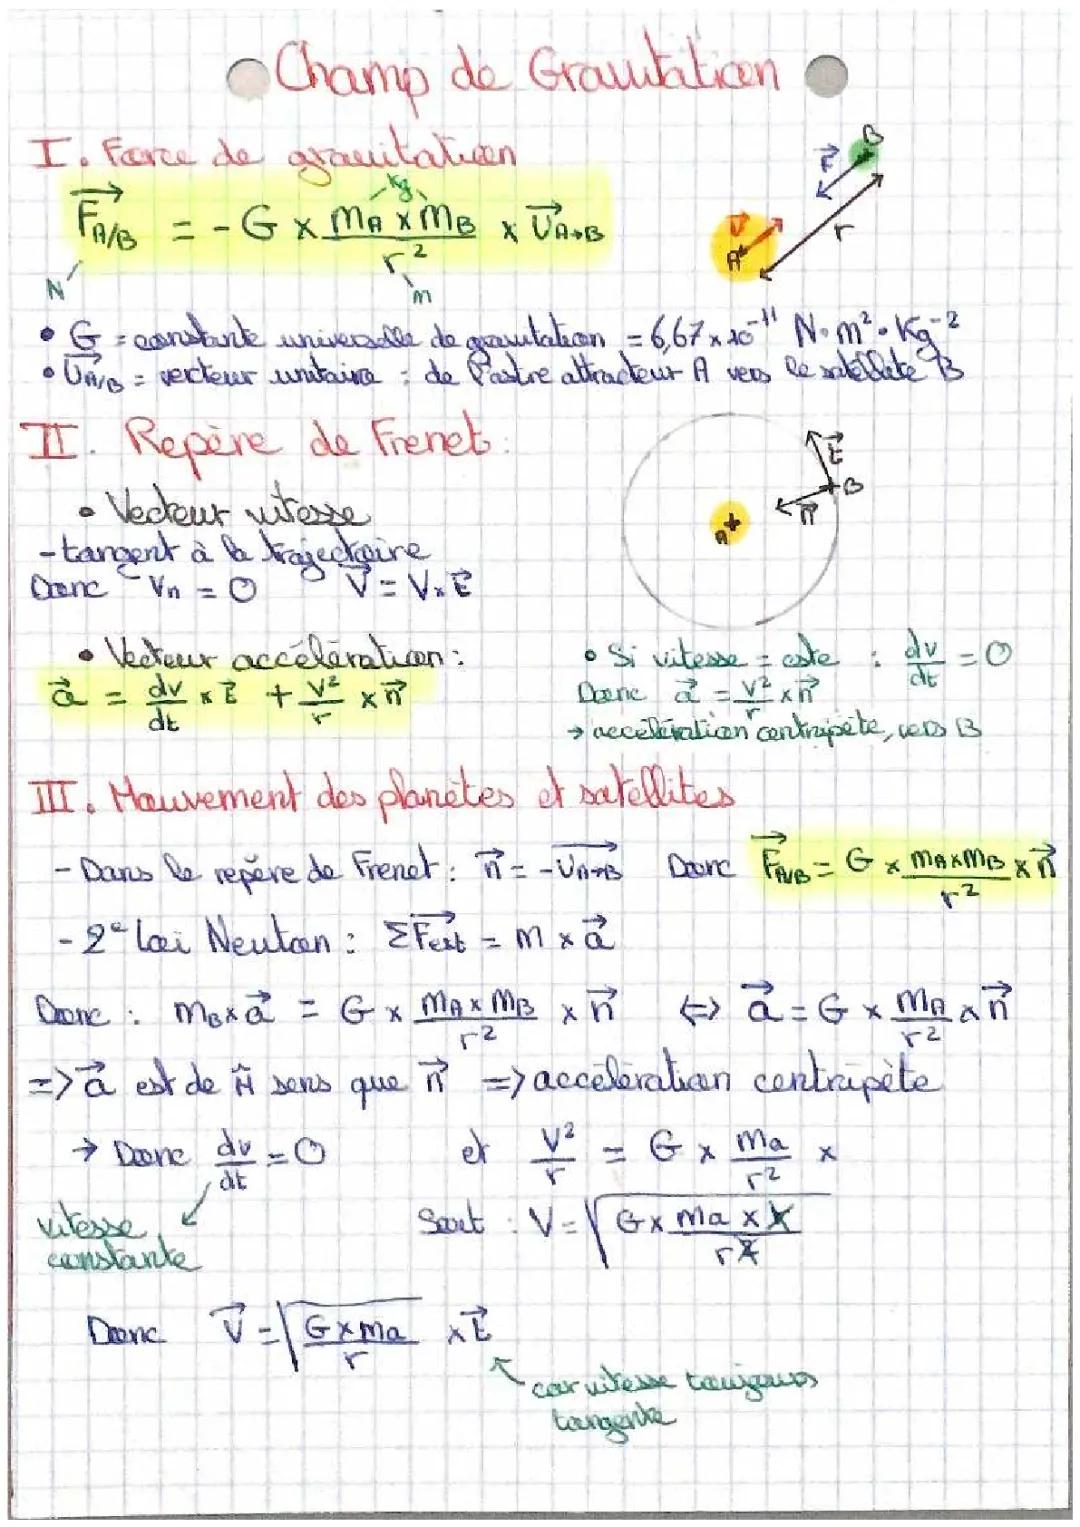 Champ de Gravitation
I. Force de gravitation
F⃗A/B = - G x mA x mB / r² x U⃗A→B
kg
N
m
B
F⃗
r
U⃗
A
• G = constante universelle de gravitation = 6,67 x 10⁻¹¹ N·m²·Kg⁻²
• U⃗A/B = vecteur unitaire : de l'astre attracteur A vers le satellite B
II. Repère de Frenet :
• Vecteur vitesse
- tangent à la trajectoire
Donc Vn = 0 V⃗ = V x t⃗
t⃗
B
n⃗
A
• Vecteur accélération :
a⃗ = dv/dt x t⃗ + v²/r x n⃗
• Si vitesse = cste : dv/dt = 0
Donc a⃗ = v²/r x n⃗
→ accélération centripète, vers B
III. Mouvement des planètes et satellites
- Dans le repère de Frenet : n⃗ = - U⃗A→B Donc F⃗A/B = G x mA x mB / r² x n⃗
- 2e Loi Newton : ΣF⃗ext = m x a⃗
Donc : mB x a⃗ = G x mA x mB / r² x n⃗ ⇔ a⃗ = G x mA / r² x n⃗
=> a⃗ est de m̂ sens que n⃗ => accélération centripète
→ Donc dv/dt = 0 et v²/r = G x ma / r² x
vitesse
constante
Soit : V = √(G x ma x r / r²)
Donc V⃗ = √(G x ma / r) x t⃗
car vitesse toujours
tangente